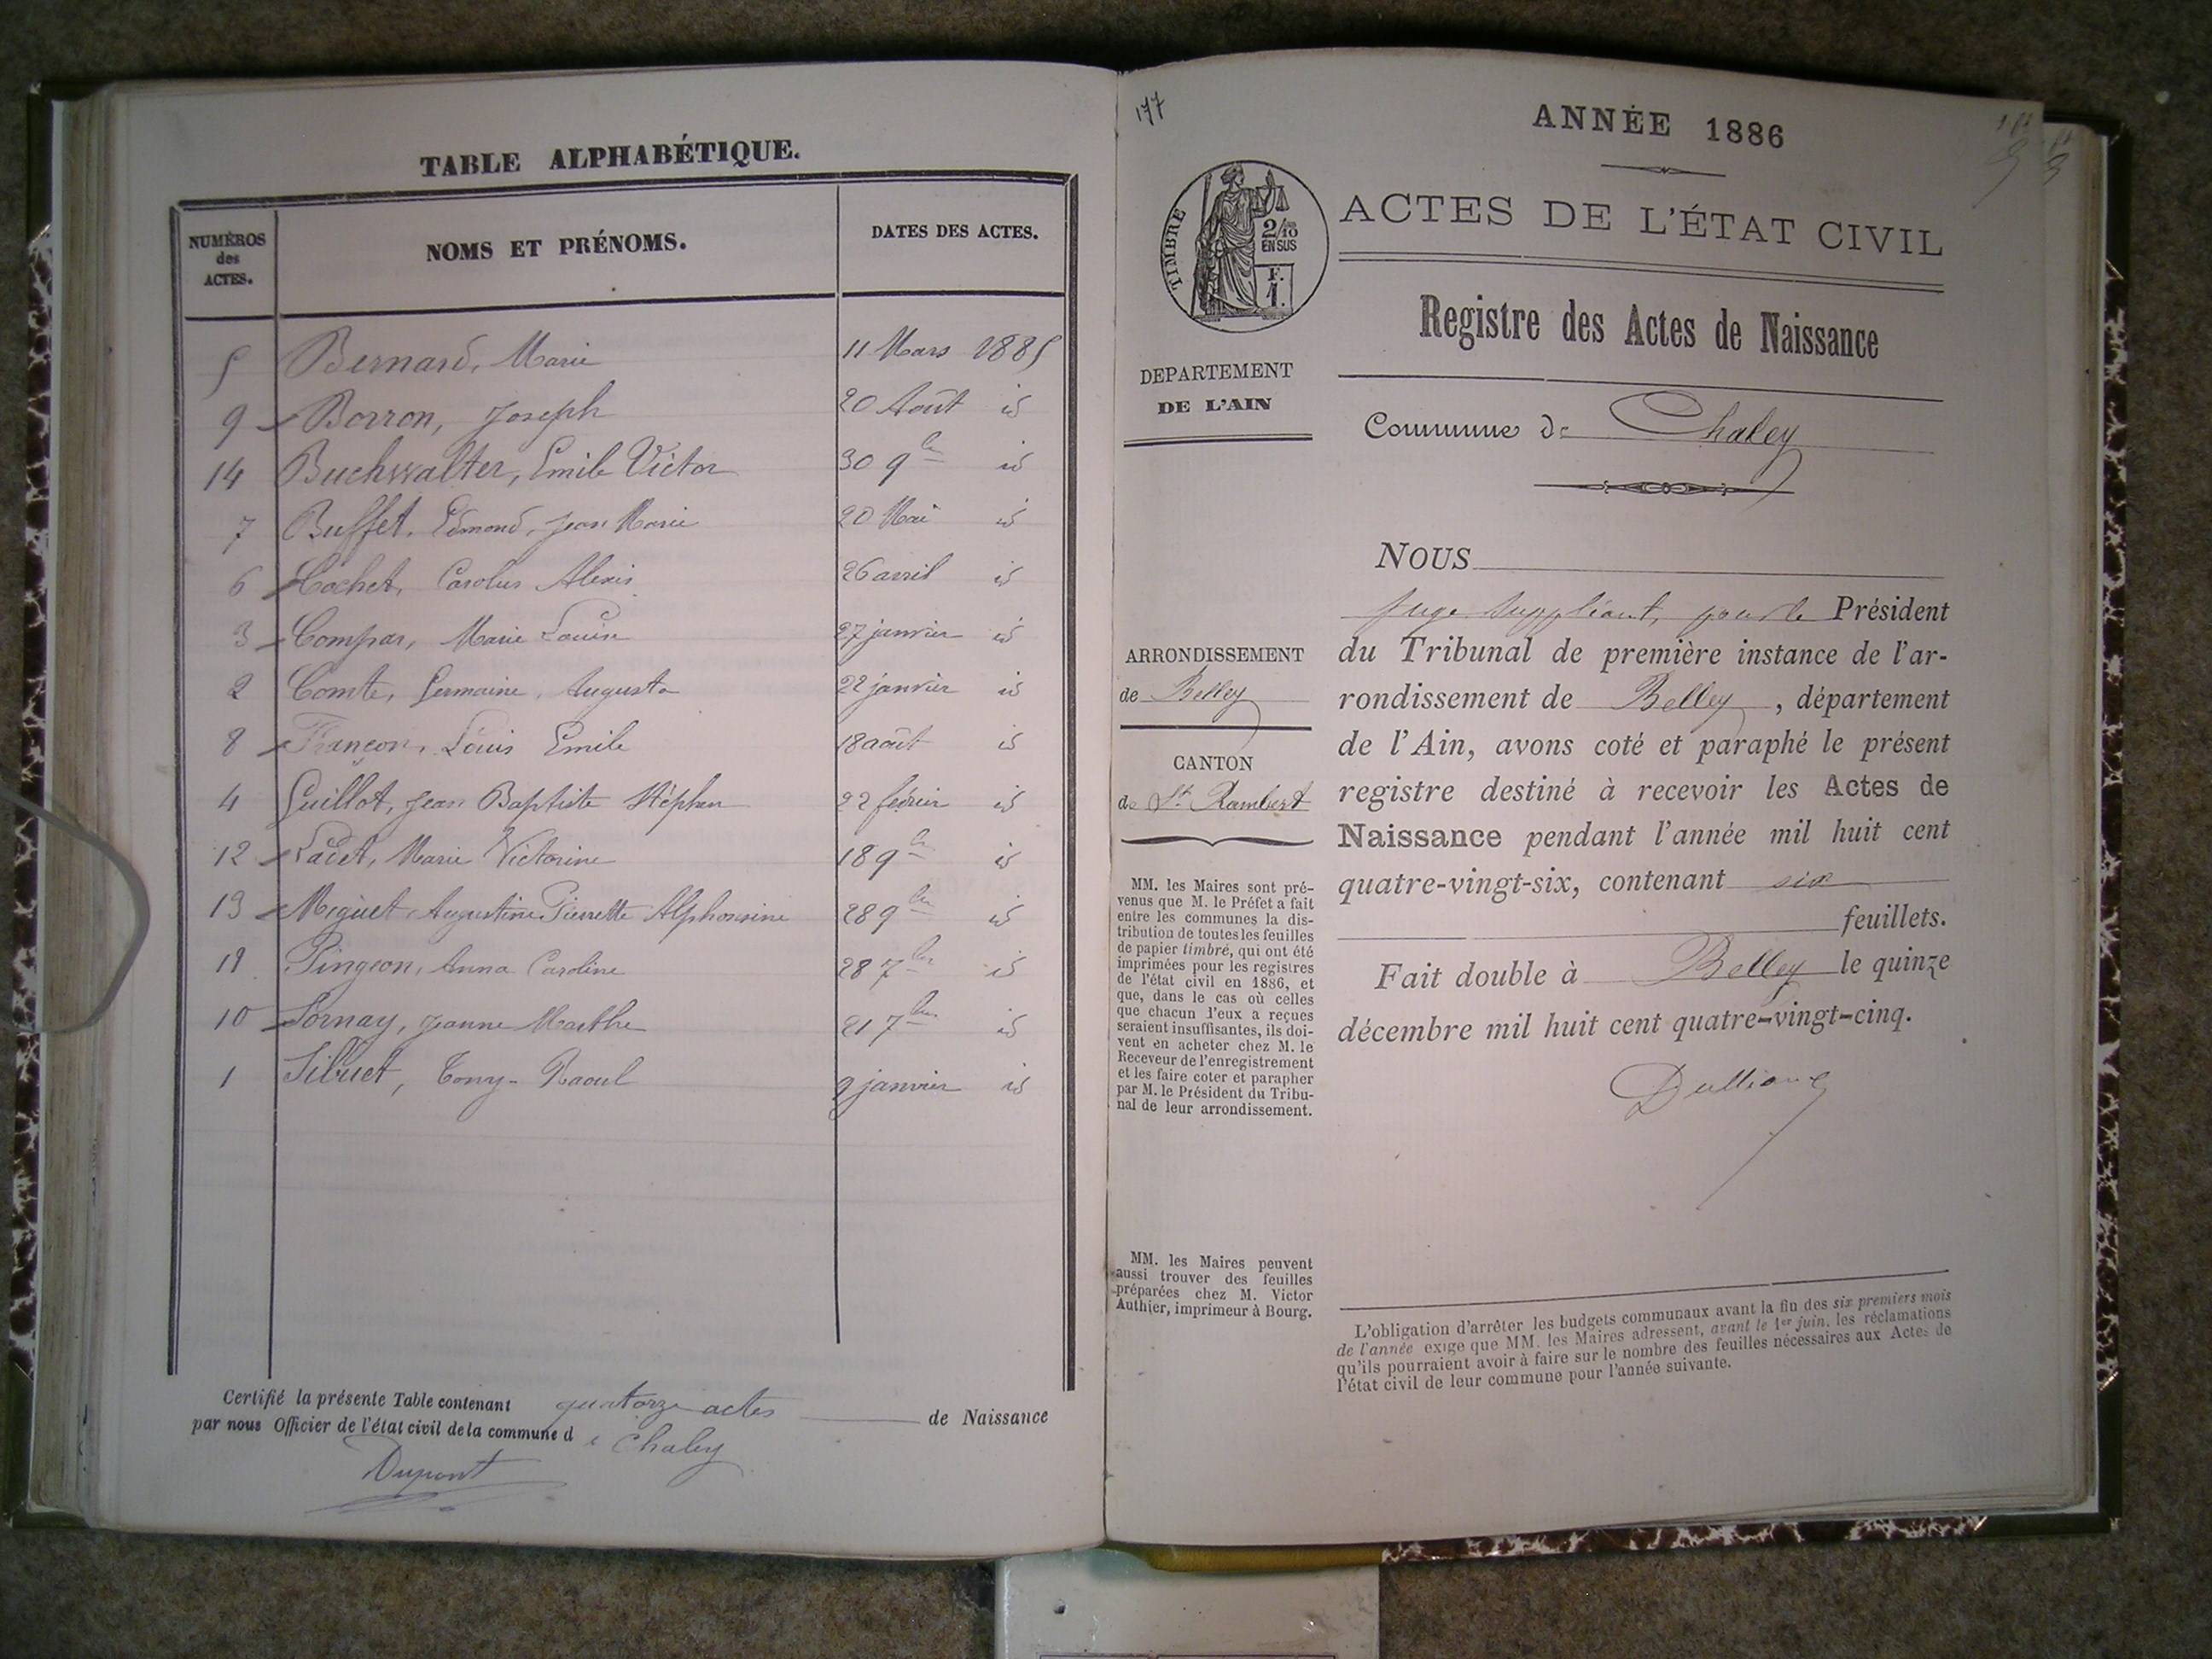 TABLE ALPHABÉTIQUE.
NUMÉROS des ACTES.
NOMS ET PRÉNOMS.
DATES DES ACTES.
5 Bernard, Marie 11 Mars 1885
9 Borron, Joseph 20 Août id
14 Buchwalter, Emile Victor 30 9bre id
7 Buffet, Edmond, Jean Marie 20 Mai id
6 Cochet, Carolus Alexis 26 avril id
3 Compar, Marie Louise 27 janvier id
2 Comte, Germaine, Augusta 22 janvier id
8 Françon, Louis Emile 18 août id
4 Guillot, Jean Baptiste Stéphen 22 février id
12 Ladet, Marie Victorine 18 9bre id
13 Miguet Augustine Pierrette Alphonsine 28 9bre id
11 Pingeon, Anna Caroline 28 7bre id
10 Sornay, Jeanne Marthe 21 7bre id
1 Sibuet, Tony-Raoul 9 janvier id
Certifié la présente Table contenant quatorze actes de Naissance
par nous Officier de l'état civil de la commune de Chaley
Dupont
177
ANNÉE 1886
ACTES DE L'ÉTAT CIVIL
TIMBRE
2/10
EN SUS
F.
1.
Registre des Actes de Naissance
DEPARTEMENT
DE L'AIN
Commune de Chaley
ARRONDISSEMENT
de Belley
CANTON
de St Rambert
MM. les Maires sont pré-
venus que M. le Préfet a fait
entre les communes la dis-
tribution de toutes les feuilles
de papier timbré, qui ont été
imprimées pour les registres
de l'état civil en 1886, et
que, dans le cas où celles
que chacun d'eux a reçues
seraient insuffisantes, ils doi-
vent en acheter chez M. le
Receveur de l'enregistrement
et les faire coter et parapher
par M. le Président du Tribu-
nal de leur arrondissement.
MM. les Maires peuvent
aussi trouver des feuilles
préparées chez M. Victor
Authier, imprimeur à Bourg.
NOUS
Juge suppléant, pour le Président
du Tribunal de première instance de l'ar-
rondissement de Belley, département
de l'Ain, avons coté et paraphé le présent
registre destiné à recevoir les Actes de
Naissance pendant l'année mil huit cent
quatre-vingt-six, contenant six
feuillets.
Fait double à Belley le quinze
décembre mil huit cent quatre-vingt-cinq.
L'obligation d'arrêter les budgets communaux avant la fin des six premiers mois
de l'année exige que MM. les Maires adressent, avant le 1er juin, les réclamations
qu'ils pourraient avoir à faire sur le nombre des feuilles nécessaires aux Actes de
l'état civil de leur commune pour l'année suivante.